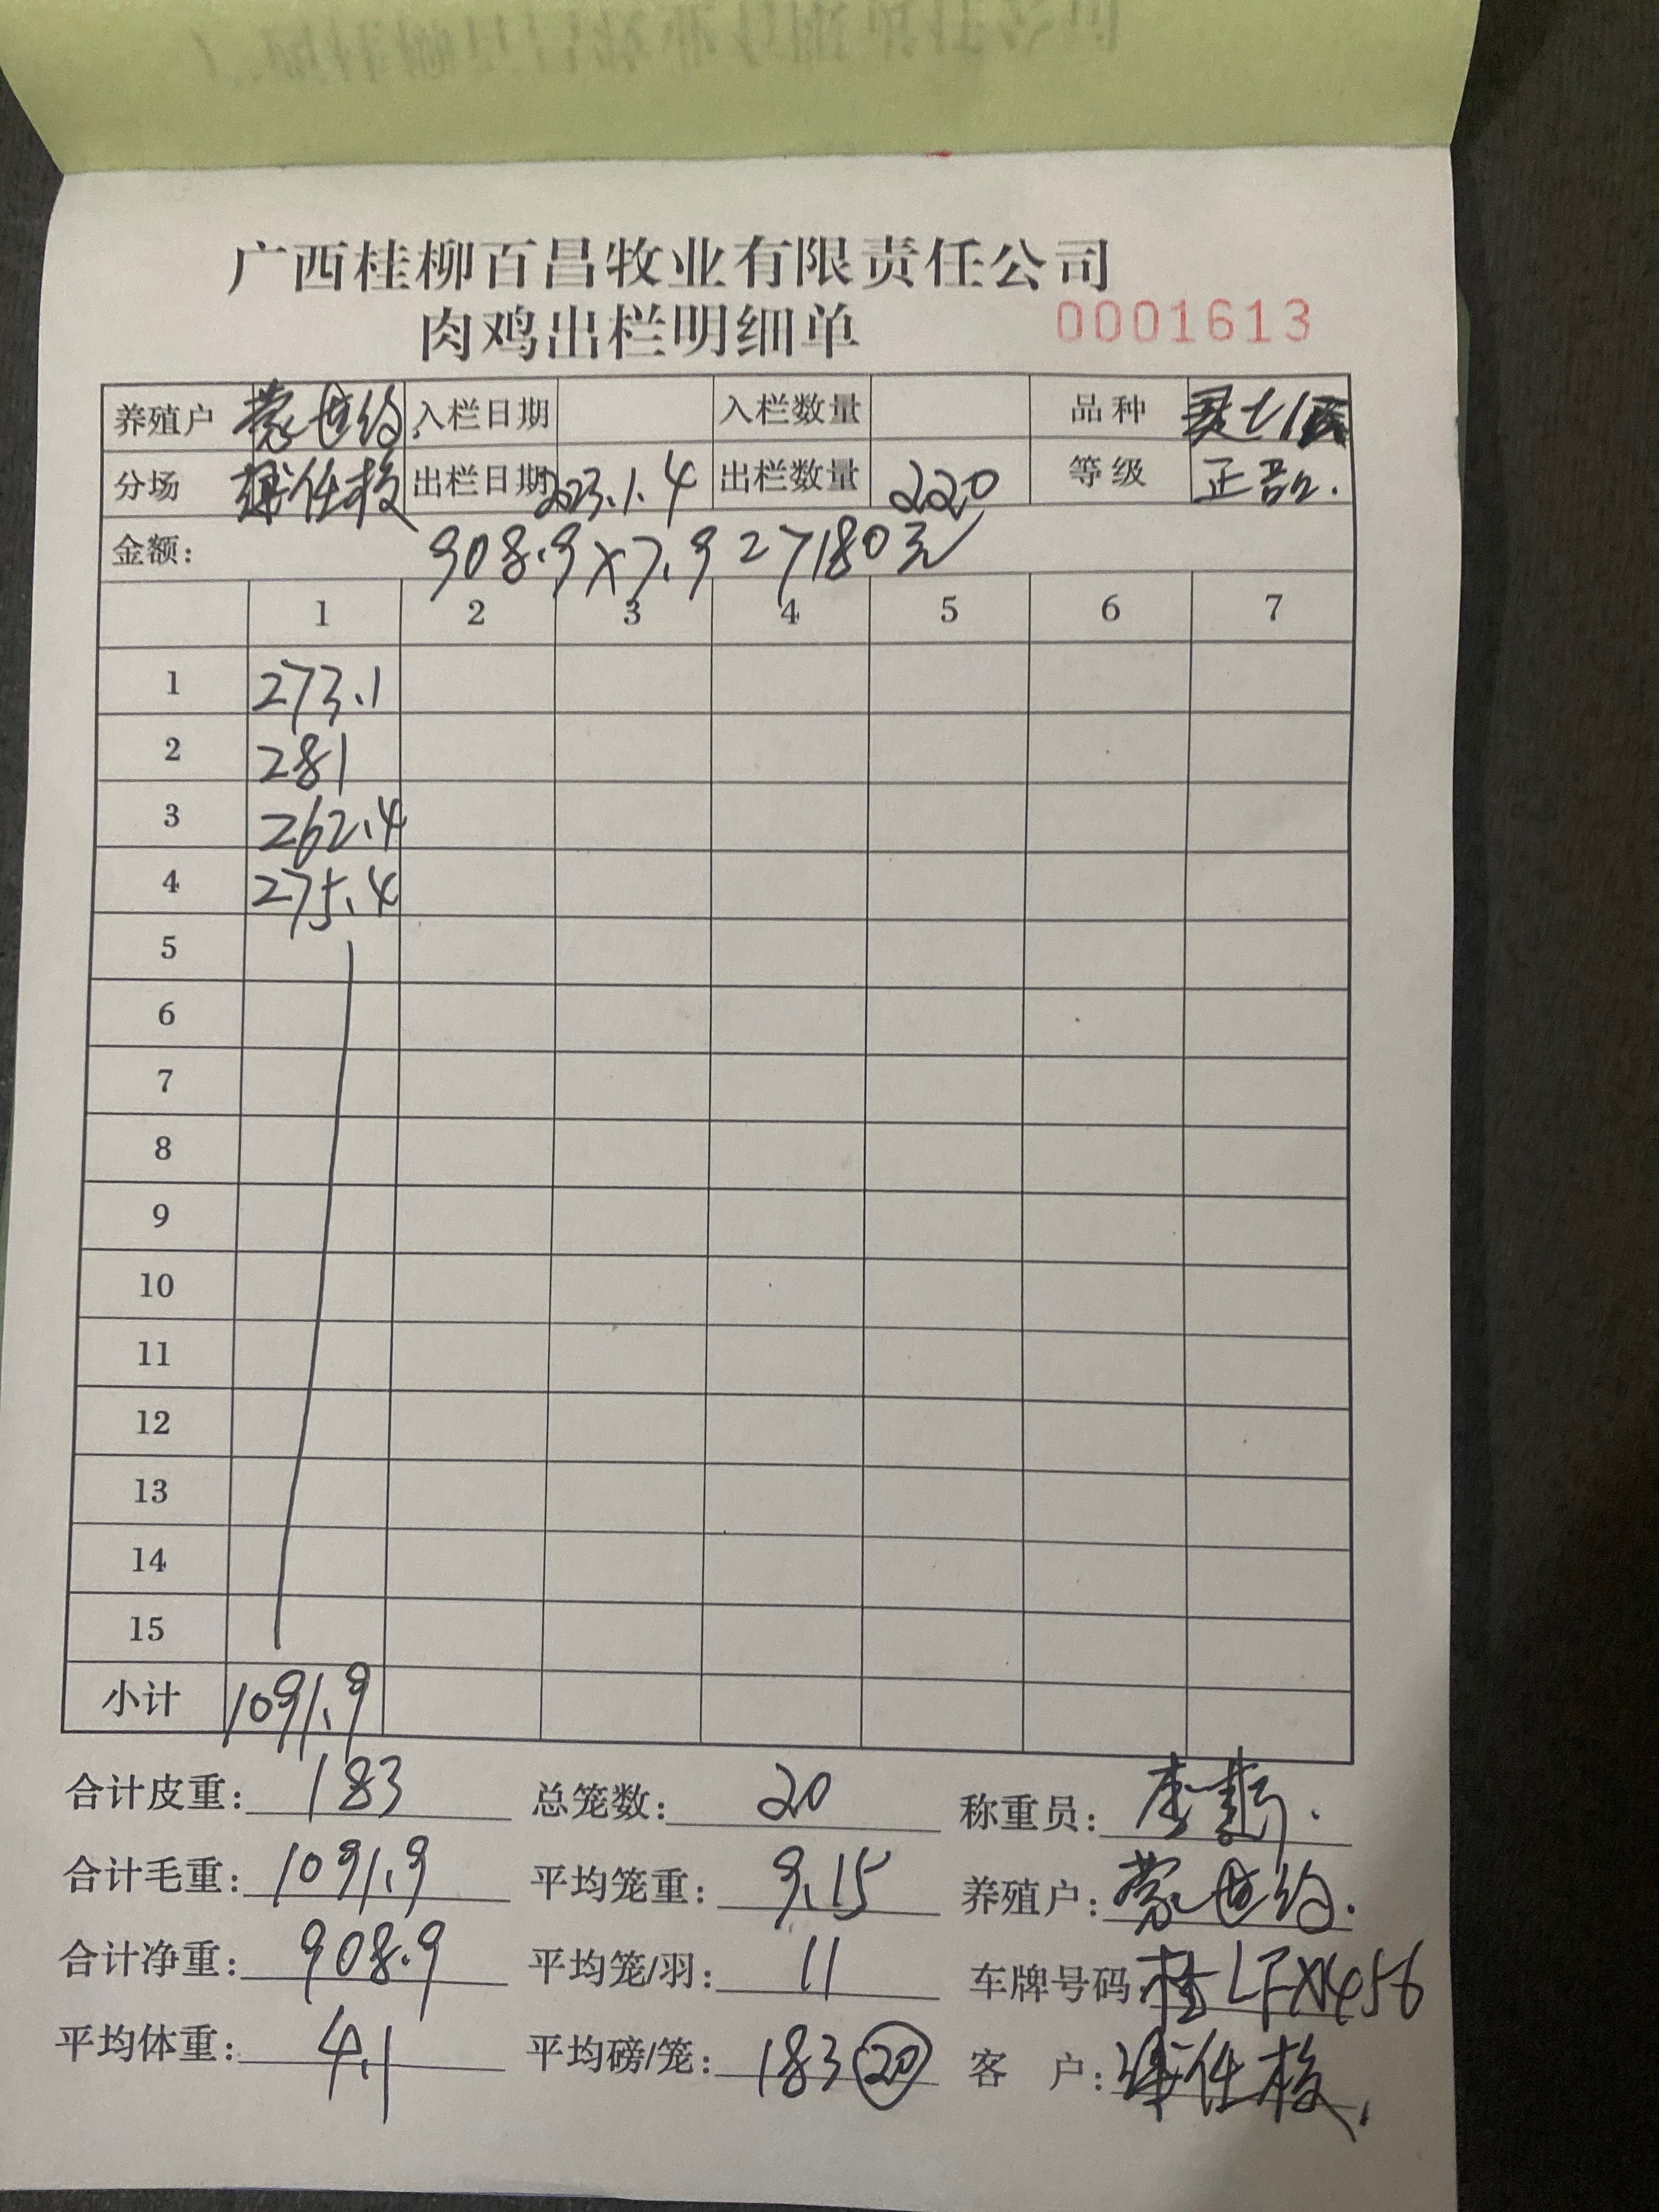 广西桂柳百昌牧业有限责任公司
肉鸡出栏明细单 0001613
养殖户 蒙世约 入栏日期 入栏数量 品种
分场 出栏日期 2023.1.4 出栏数量 220 等级 正品.
金额: 908.9×7.9 27180元
1 2 3 4 5 6 7
1 273.1
2 281
3 262.4
4 275.4
5
6
7
8
9
10
11
12
13
14
15
小计 1091.9
合计皮重: 183 总笼数: 20 称重员: 李
合计毛重: 1091.9 平均笼重: 9.15 养殖户: 蒙世约.
合计净重: 908.9 平均笼/羽: 11 车牌号码: 桂LFX456
平均体重: 4.1 平均磅/笼: 183 20 客 户: